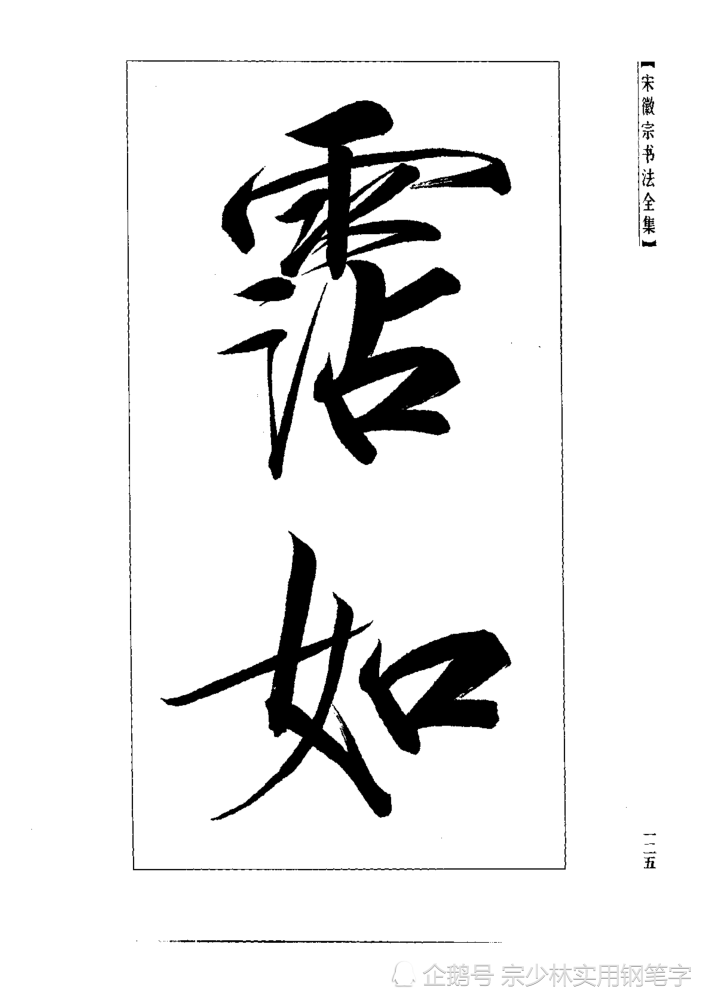 【宋徽宗书法全集】
霑如
一二五
企鹅号 宗少林实用钢笔字